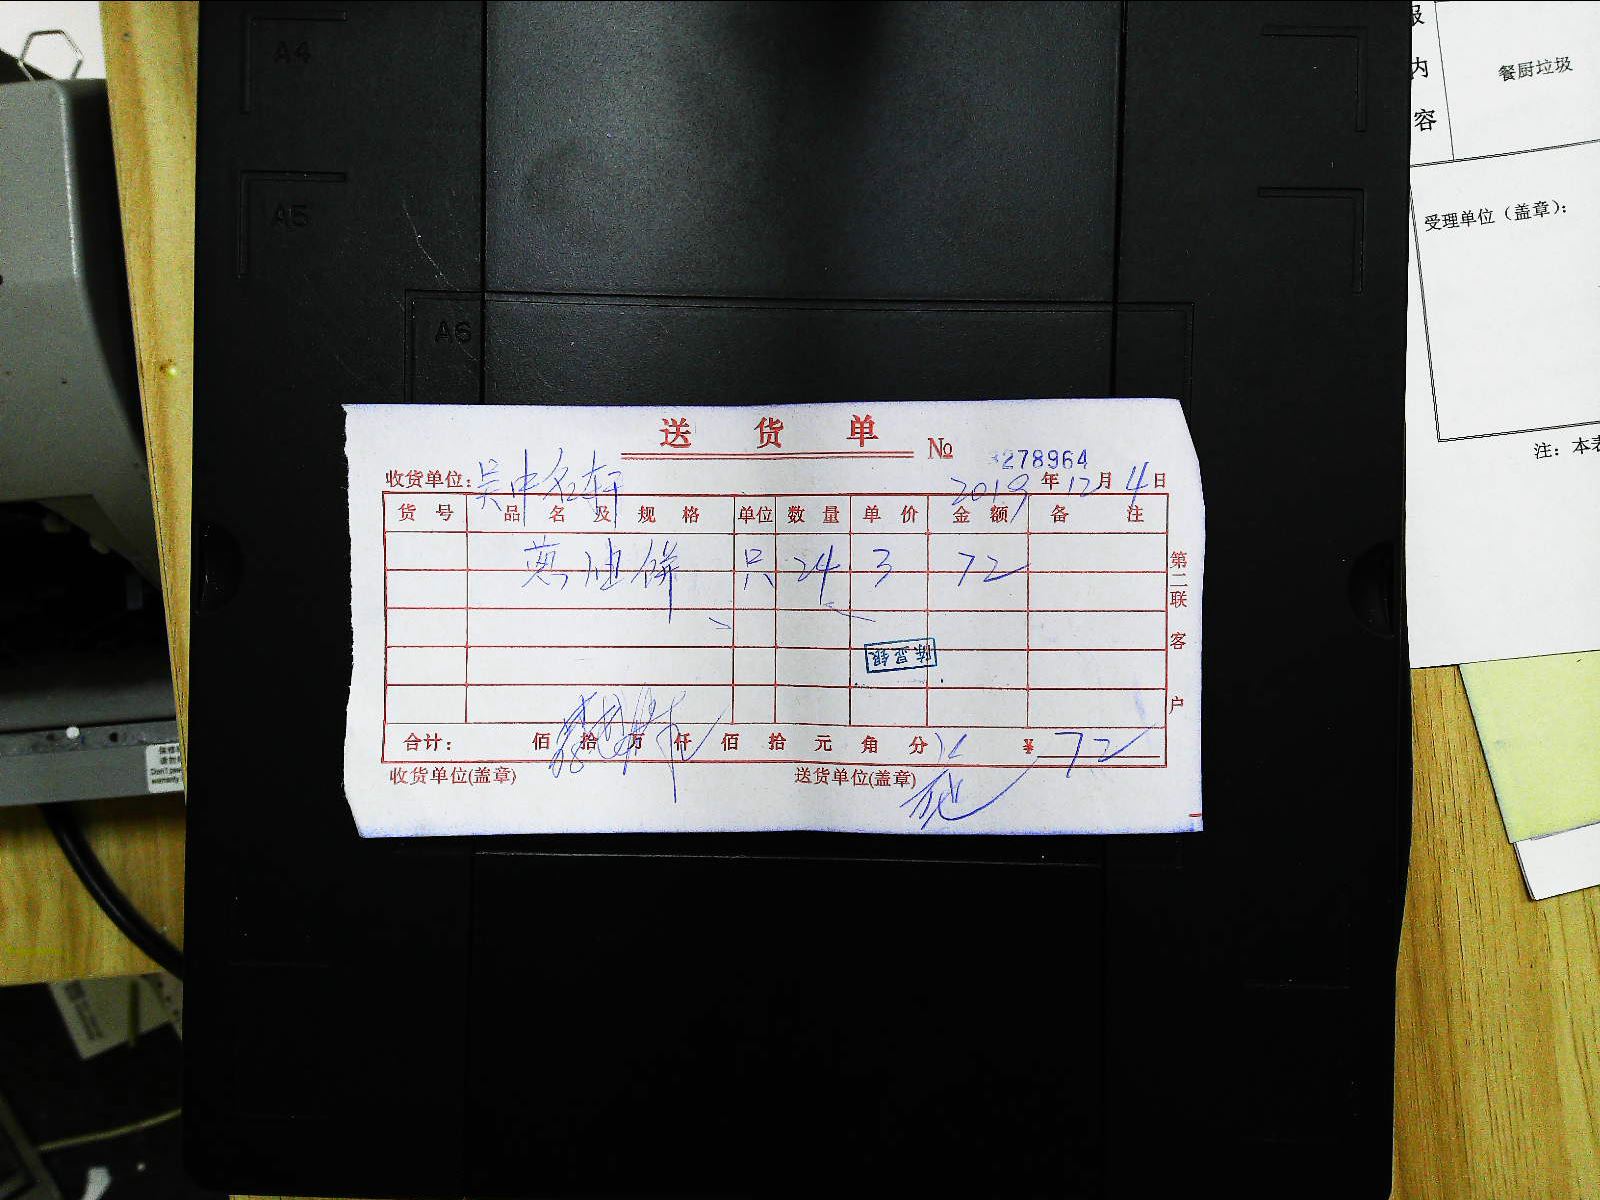 A4
A5
A6
送 货 单
№ 3278964
收货单位：吴中名轩 2019年12月4日
货号 品名及规格 单位 数量 单价 金额 备注
葱油饼 只 24 3 72
第二联 客户
陈显银
合计： 佰 拾 万 仟 佰 拾 元 角 分 ¥72
收货单位(盖章) 送货单位(盖章)
内
容
餐厨垃圾
受理单位（盖章）：
注：本表